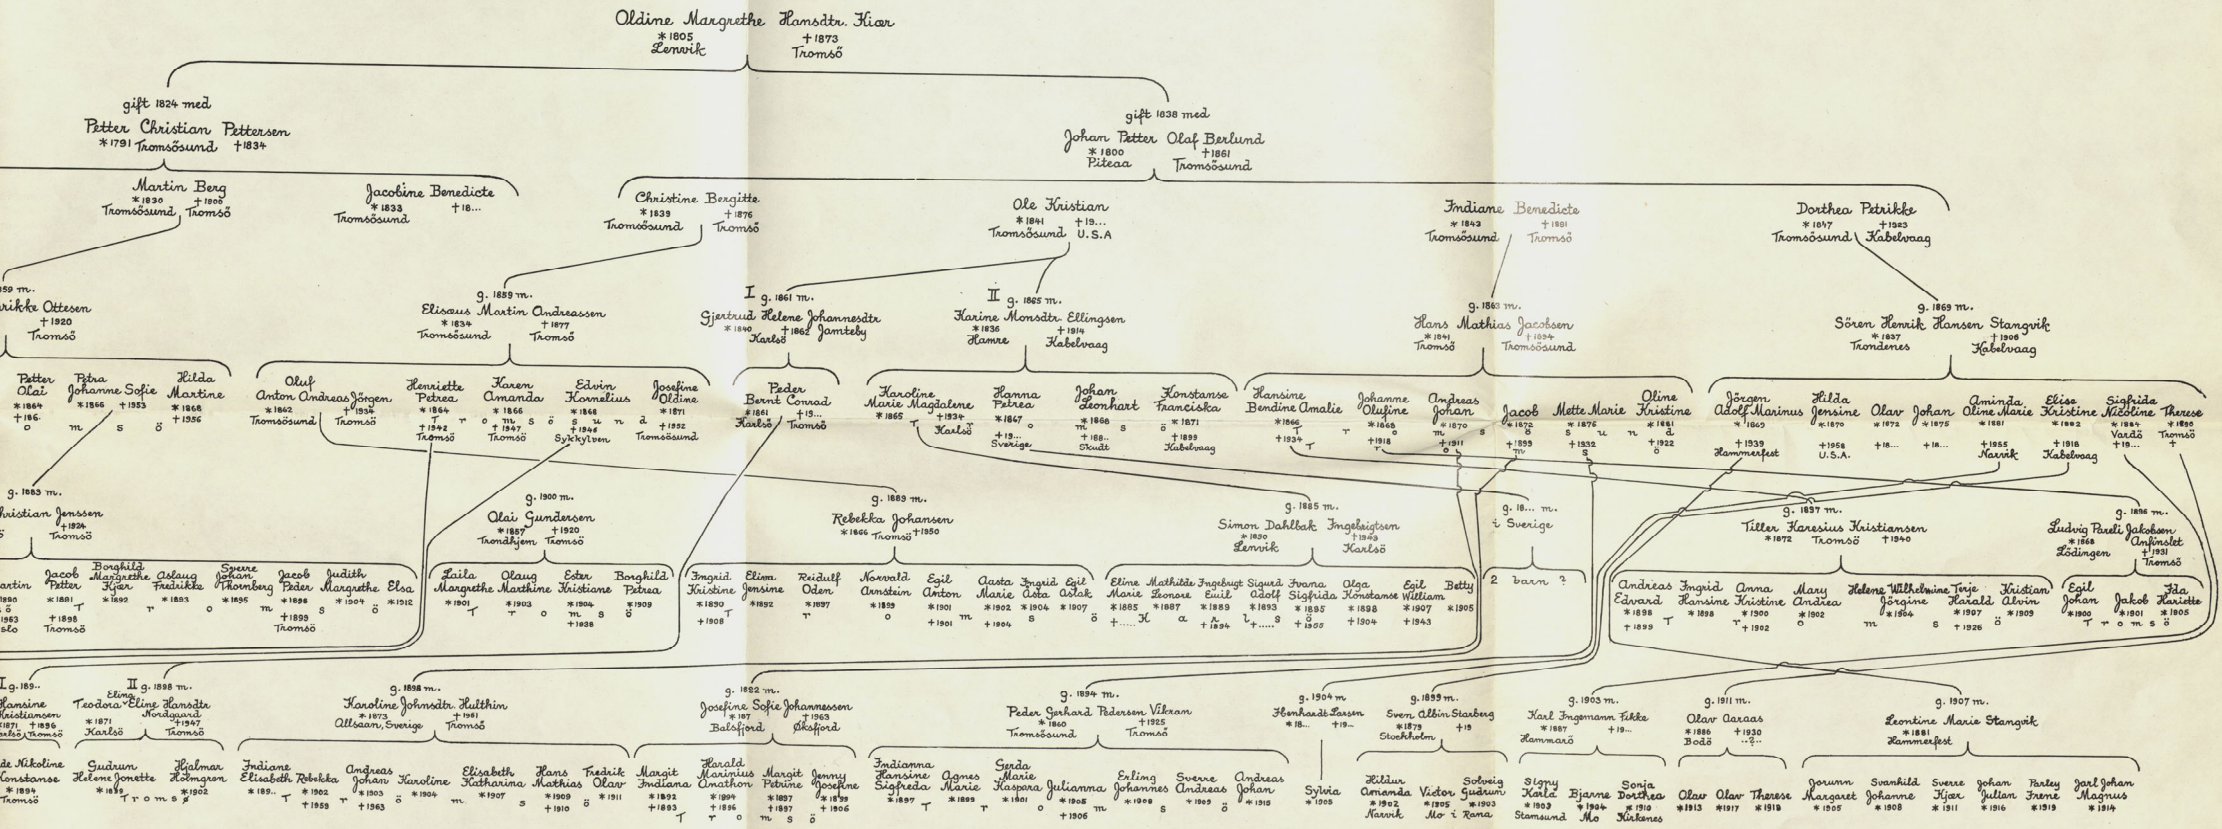 Oldine Margrethe Hansdtr. Kiær
*1805 †1873
Lenvik Tromsö
gift 1824 med
Petter Christian Pettersen
*1791 Tromsösund †1834
gift 1838 med
Johan Petter Olaf Berlund
*1800 †1861
Piteaa Tromsösund
Martin Berg
*1830 †1906
Tromsösund Tromsö
Jacobine Benedicte
*1833 †18...
Tromsösund
Christine Bergitte
*1839 †1876
Tromsösund Tromsö
Ole Kristian
*1841 †19...
Tromsösund U.S.A
Indiane Benedicte
*1843 †1881
Tromsösund Tromsö
Dorthea Petrikke
*1847 †1923
Tromsösund Kabelvaag
59 m.
rikke Ottesen
†1920
Tromsö
g. 1859 m.
Elisæus Martin Andreassen
*1834 †1877
Tromsösund Tromsö
I g. 1861 m.
Gjertrud Helene Johannesdtr
*1840 †1862 Jamteby
Karlsö
II g. 1865 m.
Karine Monsdtr. Ellingsen
*1836 †1914
Hamre Kabelvaag
g. 1863 m.
Hans Mathias Jacobsen
*1841 †1894
Tromsö Tromsösund
g. 1869 m.
Sören Henrik Hansen Stangvik
*1837 †1906
Trondenes Kabelvaag
Petter Olai
*1864
†186.
Petra Johanne Sofie
*1866 †1953
Hilda Martine
*1868
†1956
o m s ö
Oluf Anton Andreas Jörgen
*1862 †1934
Tromsösund Tromsö
Henriette Petrea
*1864
†1942
Tromsö
Karen Amanda
*1866
†1947
Tromsö
Edvin Kornelius
*1868
†1946
Sykkylven
Josefine Oldine
*1871
†1952
Tromsösund
T r o m s ö s u n d
Peder Bernt Conrad
*1861 †19...
Karlsö Tromsö
Karoline Marie Magdalene
*1865 †1934
Karlsö
Hanna Petrea
*1867
†19...
Sverige
Johan Leonhart
*1868
†188..
Skudt
Konstanse Franciska
*1871
†1899
Kabelvaag
Hansine Bendine Amalie
*1866
†1934
Johanne Olufine
*1868
†1918
Andreas Johan
*1870
†1911
Jacob
*1872
†1899
Mette Marie
*1876
†1932
Oline Kristine
*1881
†1922
T r o m s ö s u n d
Jörgen Adolf Marinus
*1869
†1939
Hammerfest
Hilda Jensine
*1870
†1958
U.S.A.
Olav
*1872
†18...
Johan
*1875
†18...
Aminda Oline Marie
*1881
†1955
Narvik
Elise Kristine
*1882
†1918
Kabelvaag
Sigfrida Nicoline
*1884
Vardö
†19...
Therese
*1890
Tromsö
†
g. 1883 m.
hristian Jenssen
†1924
Tromsö
g. 1900 m.
Olai Gundersen
*1857 †1920
Trondhjem Tromsö
g. 1889 m.
Rebekka Johansen
*1866 Tromsö †1950
g. 1885 m.
Simon Dahlbak Ingebrigtsen
*1850 †1943
Lenvik Karlsö
g. 18... m.
i Sverige
g. 1897 m.
Tiller Haresius Kristiansen
*1872 Tromsö †1940
g. 1896 m.
Ludvig Pareli Jakobsen Anfinslet
*1868 †1931
Lödingen Tromsö
artin
Jacob Petter
*1891
†1898
Tromsö
Borghild Margrethe Kjær
*1892
Aslaug Fredrikke
*1893
Sverre Johan Thornberg
*1895
Jacob Peder
*1898
†1899
Tromsö
Judith Margrethe
*1904
Elsa
*1912
T r o m s ö
Laila Margrethe
*1901
Olaug Marthine
*1903
Ester Kristiane
*1904
†1928
Borghild Petrea
*1909
T r o m s ö
Ingrid Kristine
*1890
†1908
Elina Jensine
*1892
Reidulf Oden
*1897
Norvald Arnstein
*1899
Egil Anton
*1901
†1901
Aasta Marie
*1902
†1904
Ingrid Asta
*1904
Egil Aslak
*1907
T r o m s ö
Eline Marie
*1885
†.....
Mathilde Leonore
*1887
Ingebrigt Emil
*1889
†1894
Sigurd Adolf
*1893
†.....
Ivana Sigfrida
*1895
†1955
Olga Konstanse
*1898
†1904
Egil William
*1907
†1943
Betty
*1905
K a r l s ö
2 barn ?
Andreas Edvard
*1898
†1899
Ingrid Hansine
*1898
Anna Kristine
*1900
†1902
Mary Andrea
*1902
Helene Wilhelmine Jörgine
*1904
Terje Harald
*1907
†1926
Kristian Alvin
*1909
T r o m s ö
Egil Johan
*1900
Jakob
*1901
Ida Hariette
*1905
T r o m s ö
I g. 189..
Hansine Kristiansen
*1871 †1896
Karlsö Tromsö
II g. 1898 m.
Teodora Eline Hansdtr
Elina
Nordgaard
*1871 †1947
Karlsö Tromsö
g. 1898 m.
Karoline Johnsdtr. Hulthin
*1873 †1961
Allsaan, Sverige Tromsö
g. 1892 m.
Josefine Sofie Johannessen
*187 †1963
Balsfjord Øksfjord
g. 1894 m.
Peder Gerhard Pedersen Vikran
*1860 †1925
Tromsösund Tromsö
g. 1904 m
Ebenhardt Larsen
*18... †19...
g. 1899 m.
Sven Albin Starberg
*1879 †19
Stockholm
g. 1903 m.
Karl Ingemann Fikke
*1887 †19...
Hammarö
g. 1911 m.
Olav Aaraas
*1886 †1930
Bodö ..?..
g. 1907 m.
Leontine Marie Stangvik
*1881
Hammerfest
de Nikoline
Konstanse
*1894
Tromsö
Gudrun Helene Jonette
*1899
Hjalmar Holmgren
*1902
Tromsø
Indiane Elisabeth
*189..
Rebekka
*1902
†1959
Andreas Johan
*1903
†1963
Karoline
*1904
Elisabeth Katharina
*1907
Hans Mathias
*1909
†1910
Fredrik Olav
*1911
T r o m s ö
Margit Indiana
*1892
†1893
Harald Marinius Anathon
*1894
†1896
Margit Petrine
*1897
†1897
Jenny Josefine
*1899
†1906
T r o m s ö
Indianna Hansine Sigfreda
*1897
Agnes Marie
*1899
Gerda Marie Kaspara
*1901
Julianna
*1905
†1906
Erling Johannes
*1908
Sverre Andreas
*1909
Andreas Johan
*1915
T r o m s ö
Sylvia
*1905
Hildur Amanda
*1902
Narvik
Victor
*1905
Solveig Gudrun
*1903
Mo i Rana
Signy Karla
*1903
Stamsund
Bjarne
*1904
Mo
Sonja Dorthea
*1910
Kirkenes
Olav
*1913
Olav
*1917
Therese
*1918
Jorunn Margaret
*1905
Svanhild Johanne
*1908
Sverre Kjær
*1911
Johan Julian
*1916
Parley Irene
*1919
Jarl Johan Magnus
*1914